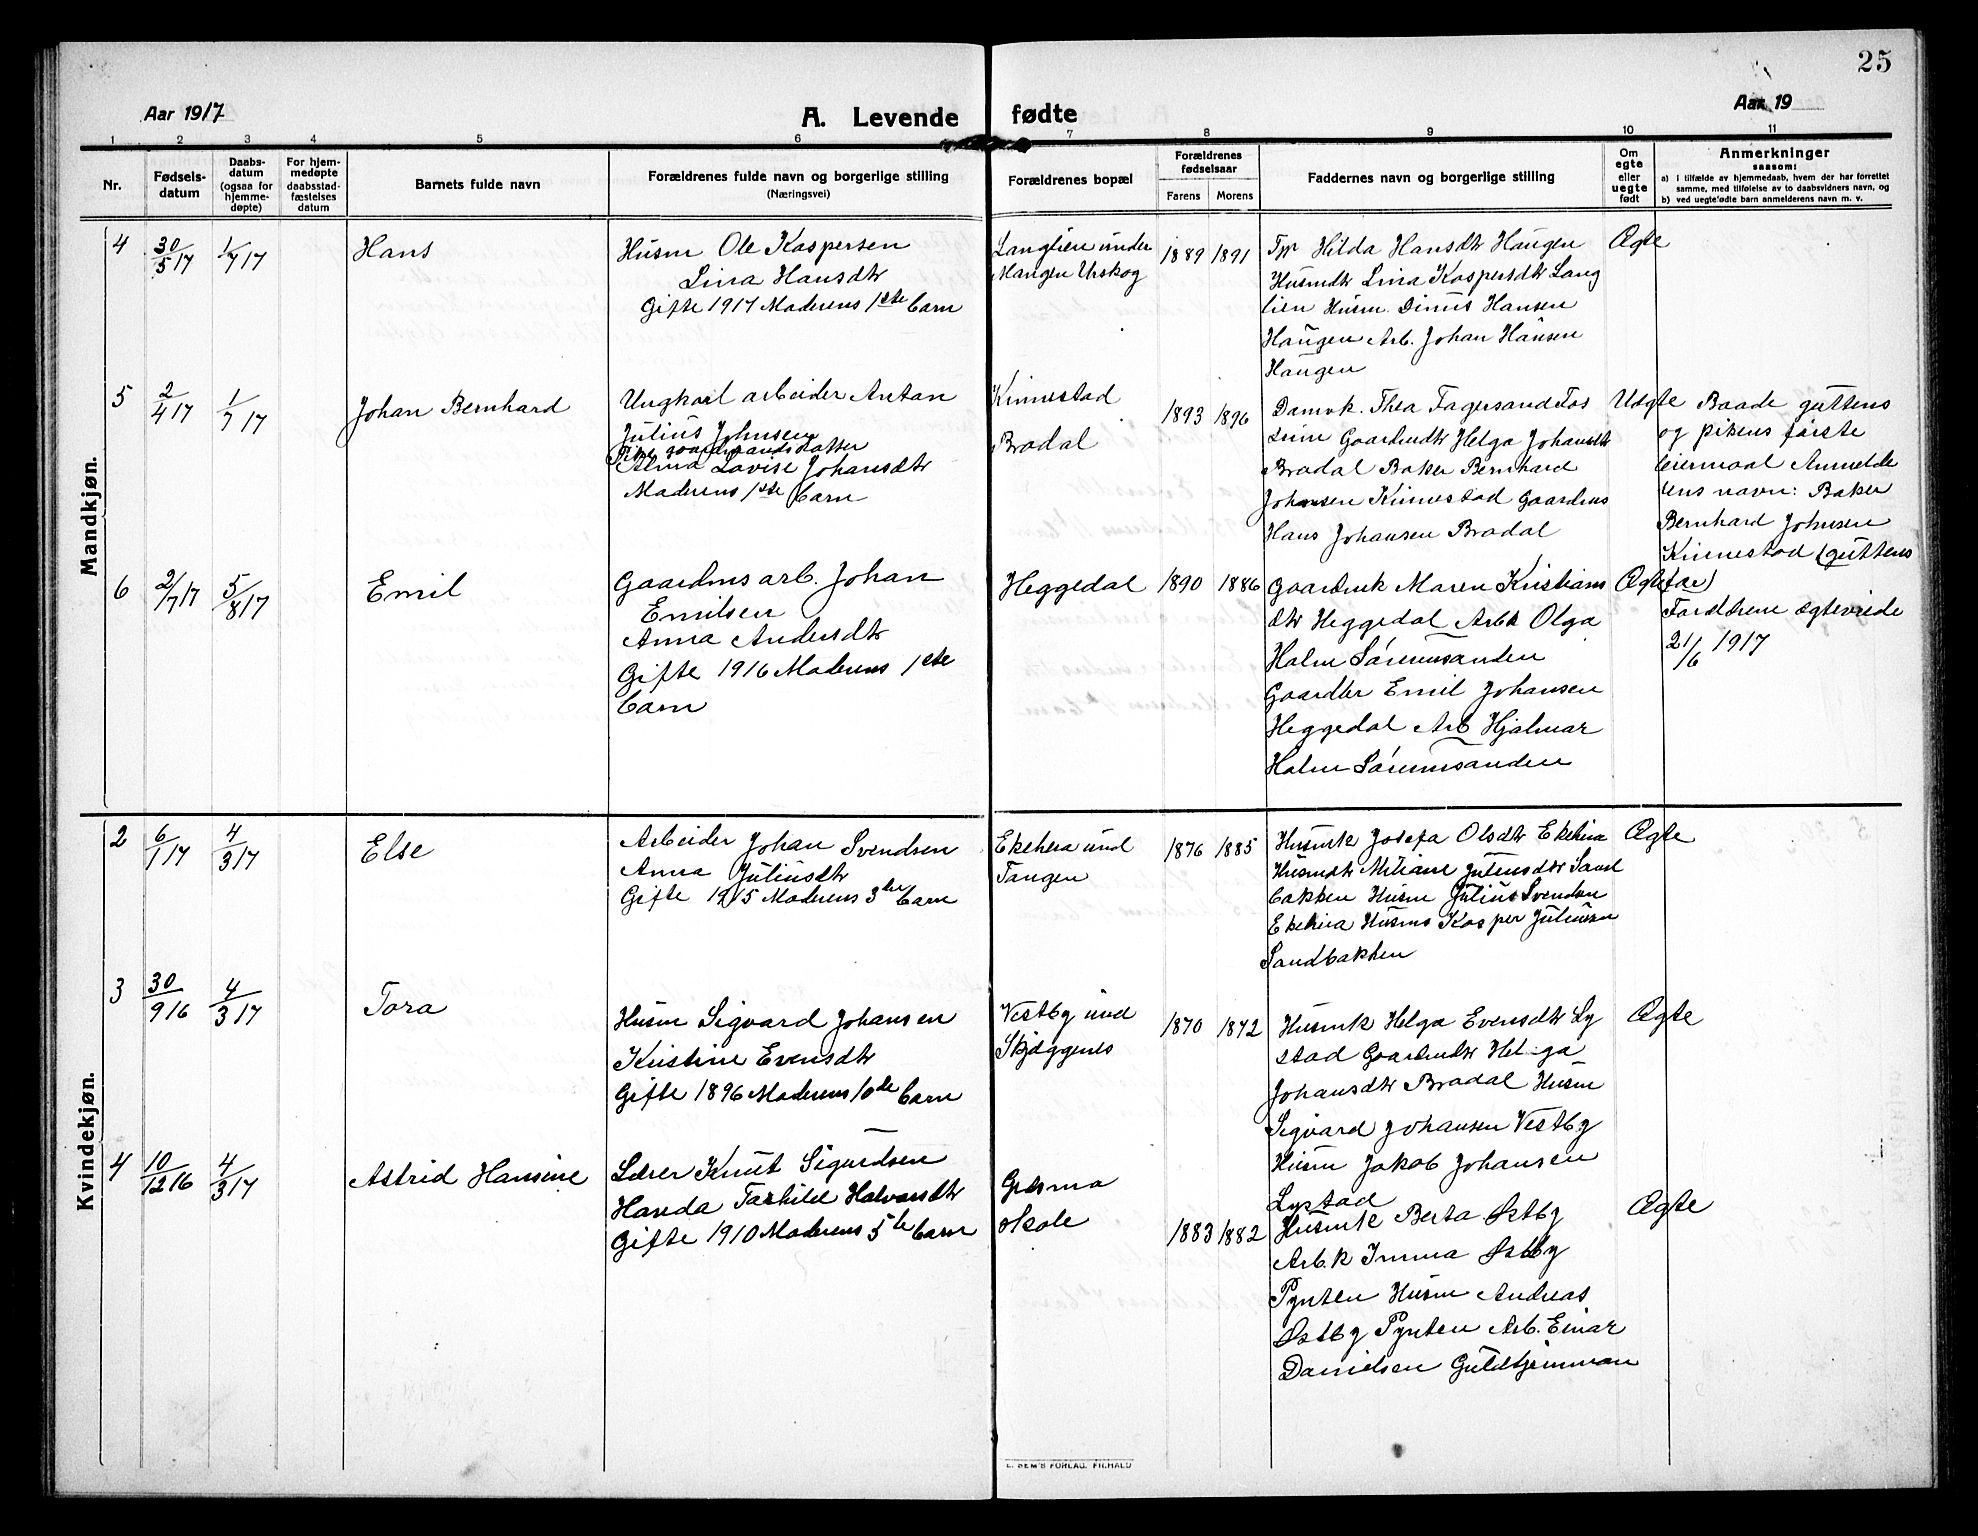 25
Aar 1917
A. Levende fødte
Aar 19
1 2 3 4 5 6 7 8 9 10 11
Nr.
Fødsels-
datum
Daabs-
datum
(ogsaa for
hjemme-
døpte)
For hjem-
medøpte
daabsstad-
fæstelses
datum
Barnets fulde navn
Forældrenes fulde navn og borgerlige stilling
(Næringsvei)
Forældrenes bopæl
Forældrenes
fødselsaar
Farens Morens
Faddernes navn og borgerlige stilling
Om
egte
eller
uegte
født
Anmerkninger
saasom:
a) i tilfælde av hjemmedaab, hvem der har forrettet
samme, med tilføielse av to daabsvidners navn, og
b) ved uegtefødte barn anmelderens navn m. v.
Mandkjøn.
4 30/5 17 1/7 17 Hans
Husm Ole Kaspersen
Lina Hansdtr
Gifte 1917 Moderens 1ste barn
Langlien under
Mangen Urskog
1889 1891
Tp Hilda Hansdtr Haugen
Husmdtr Lina Kaspersdtr Lang
lien Husm. Dinus Hansen
Haugen Arb. Johan Hansen
Haugen
Ægte
5 2/4 17 1/7 17 Johan Bernhard
Ungkarl arbeider Anton
Julius Johnsen
Pike gaardmandsdatter
Alma Lovise Johansdtr
Moderens 1ste barn
Kinnestad
Bradal
1893 1896
Damsk. Thea Fagersand Fos
Gaardmdtr Helga Johansdtr
Bradal Baker Bernhard
Johansen Kinnestad Gaardms
Hans Johansen Bradal
Uægte
Baade guttens
og pikens første
leiermaal Anmelde
rens navn: Baker
Bernhard Johnsen
Kinnestad (guttens
far)
Forældrene egteviede
21/6 1917
6 2/7 17 5/8 17 Emil
Gaardms arb. Johan
Emilsen
Anna Andersdtr
Gifte 1916 Moderens 1ste
barn
Heggedal
1890 1886
Gaardmk Maren Kristians
dtr Heggedal Arbk Olga
Holm Sørumsanden
Gaardbr Emil Johansen
Heggedal Arb Hjalmar
Holm Sørumsanden
Ægte
Kvindekjøn.
2 6/1 17 4/3 17 Else
Arbeider Johan Svendsen
Anna Juliusdtr
Gifte 1915 Moderens 3die barn
Ekehera und
Tangen
1876 1885
Husmk Josefa Olsdtr Ekehera
Husmdtr Miliane Juliusdtr Sand
bakken Husm Julius Svendsen
Ekehera Husms Kasper Juliussen
Sandbakken
Ægte
3 30/9 16 4/3 17 Tora
Husm Sigvard Johansen
Kristine Evensdtr
Gifte 1896 Moderens 10de barn
Vestby und
Skjæggenes
1870 1872
Husmk Helga Evensdtr Ly
stad Gaardmdtr Helga
Johansdtr Bradal Husm
Sigvard Johansen Vestby
Husm Jakob Johansen
Lystad
Ægte
4 10/12 16 4/3 17 Astrid Hansine
Lærer Knut Sigurdsen
Handa Torhild Halvorsdtr
Gifte 1910 Moderens 5te barn
Græsmo
skole
1883 1882
Husmk Berta Østby
Arb.k Imma Østby
Pynten Husm Andreas
Østby Pynten Arb. Einar
Danielsen Guldtjernmoen
Ægte
E. SEM'S FORLAG. FR.HALD